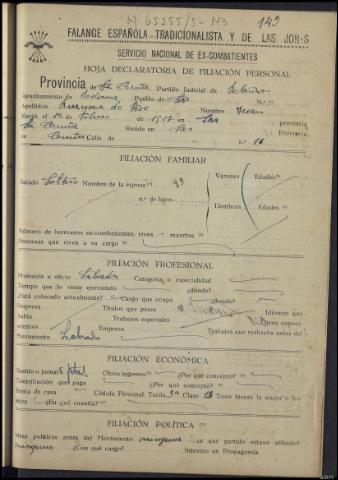 65255/5-143 143
FALANGE ESPAÑOLA TRADICIONALISTA Y DE LAS JON-S
SERVICIO NACIONAL DE EX-COMBATIENTES
HOJA DECLARATORIA DE FILIACIÓN PERSONAL
Provincia de La Coruña Partido Judicial de
Ayuntamiento de Pueblo de
Apellidos Nombre Juan
Nació el de de provincia
La Coruña Reside en Provincia
Calle de n.º 16
FILIACIÓN FAMILIAR
Estado Soltero Nombre de la esposa
Varones Edades
n.º de hijos
Hembras Edades
Número de hermanos ex-combatientes; vivos muertos
Personas que viven a su cargo
FILIACIÓN PROFESIONAL
Profesión u oficio Labrador Categoría o especialidad
Tiempo que lo viene ejerciendo ¿dónde?
¿Está colocado actualmente? Cargo que ocupa ¿dónde?
Empresa Títulos que posee Idiomas que
habla Trabajos especiales Otros conoci-
mientos Empresa Trabajos que realizaba antes del
Movimiento Labrador
FILIACIÓN ECONÓMICA
Sueldo o jornal Otros ingresos ¿Por qué concepto?
Contribución que paga ¿Por qué concepto?
Renta de casa Cédula Personal Tarifa 3ª Clase 13 Tiene bienes la mujer o los
hijos ¿En qué cuantía?
FILIACIÓN POLÍTICA
Ideas políticas antes del Movimiento ninguna ¿a qué partido estuvo afiliado?
ninguno ¿Con qué cargo? Intervino en Propaganda